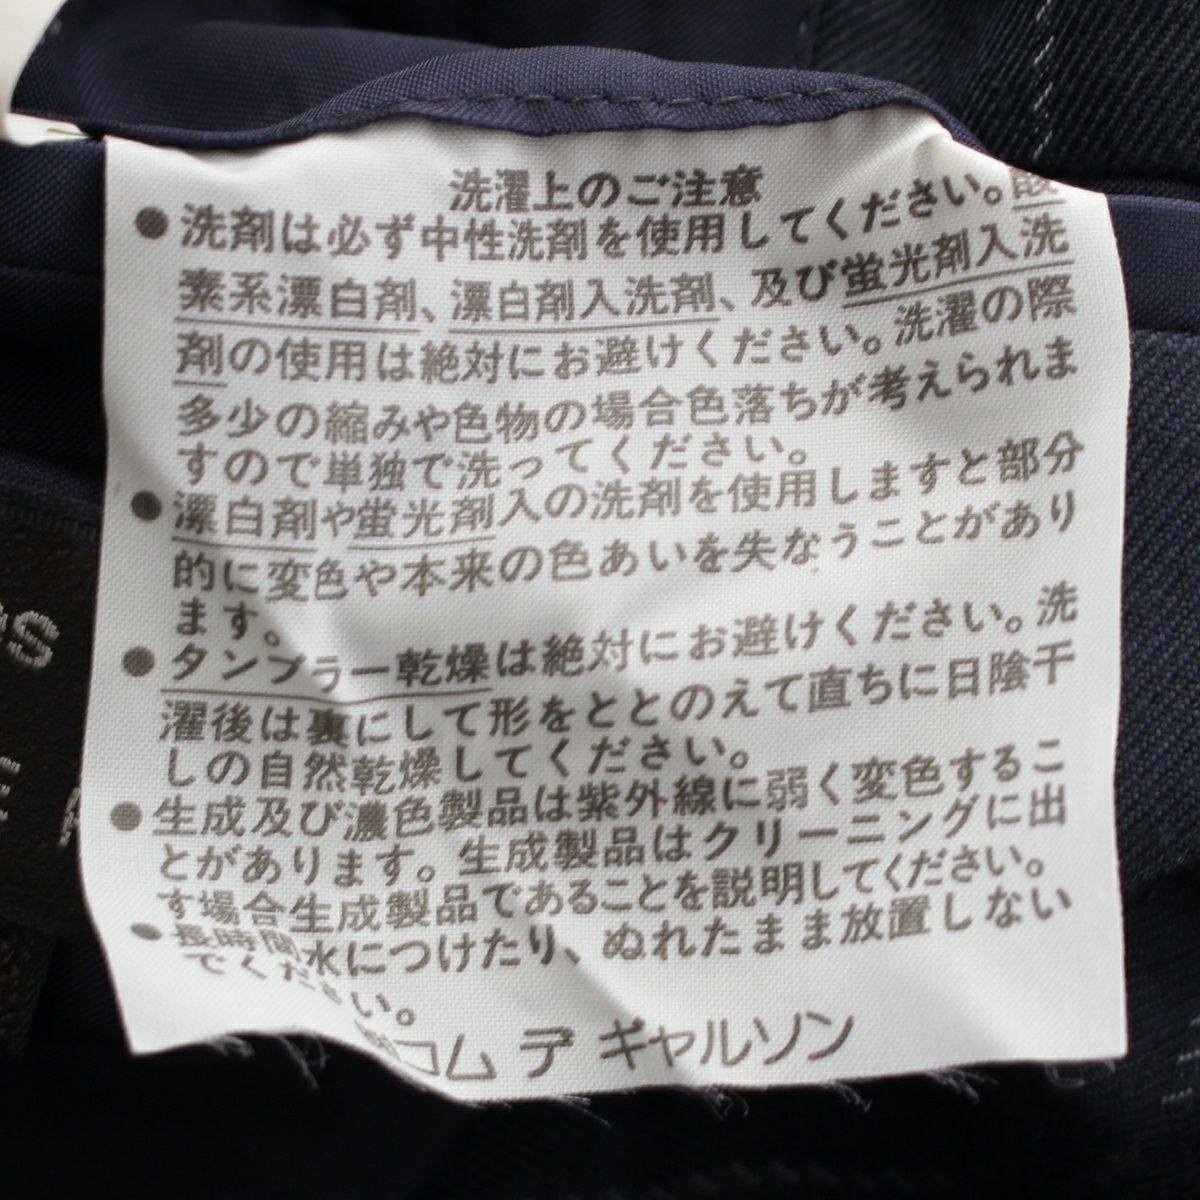 洗濯上のご注意
●洗剤は必ず中性洗剤を使用してください。酸
素系漂白剤、漂白剤入洗剤、及び蛍光剤入洗
剤の使用は絶対にお避けください。洗濯の際
多少の縮みや色物の場合色落ちが考えられま
すので単独で洗ってください。
●漂白剤や蛍光剤入の洗剤を使用しますと部分
的に変色や本来の色あいを失なうことがあり
ます。
●タンブラー乾燥は絶対にお避けください。洗
濯後は裏にして形をととのえて直ちに日陰干
しの自然乾燥してください。
●生成及び濃色製品は紫外線に弱く変色するこ
とがあります。生成製品はクリーニングに出
す場合生成製品であることを説明してください。
●長時間水につけたり、ぬれたまま放置しない
でください。
コム デ ギャルソン